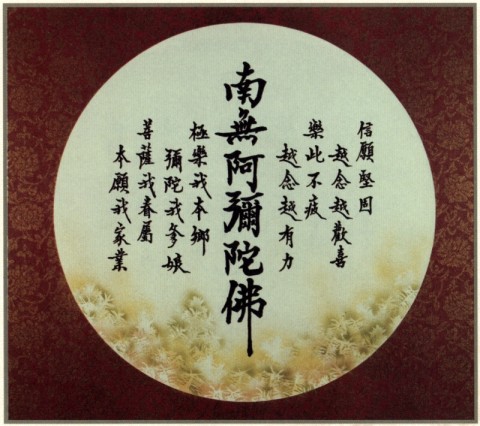 信願堅固
越念越歡喜
樂此不疲
越念越有力
南無阿彌陀佛
極樂我本鄉
彌陀我爹娘
菩薩我眷屬
本願我家業